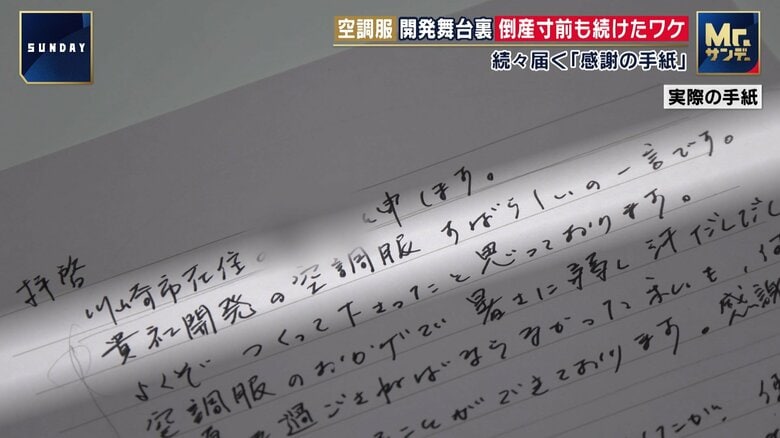 SUNDAY
空調服 開発舞台裏 倒産寸前も続けたワケ
続々届く「感謝の手紙」
Mr.サンデー
実際の手紙
拝啓
川崎市在住 申します。
貴社開発の空調服 すばらしいの一言です。
よくぞ つくって下さったと思っております。
空調服のおかげで 暑さに 汗だしだし
過ごさねばならなかった
ことができております。感謝